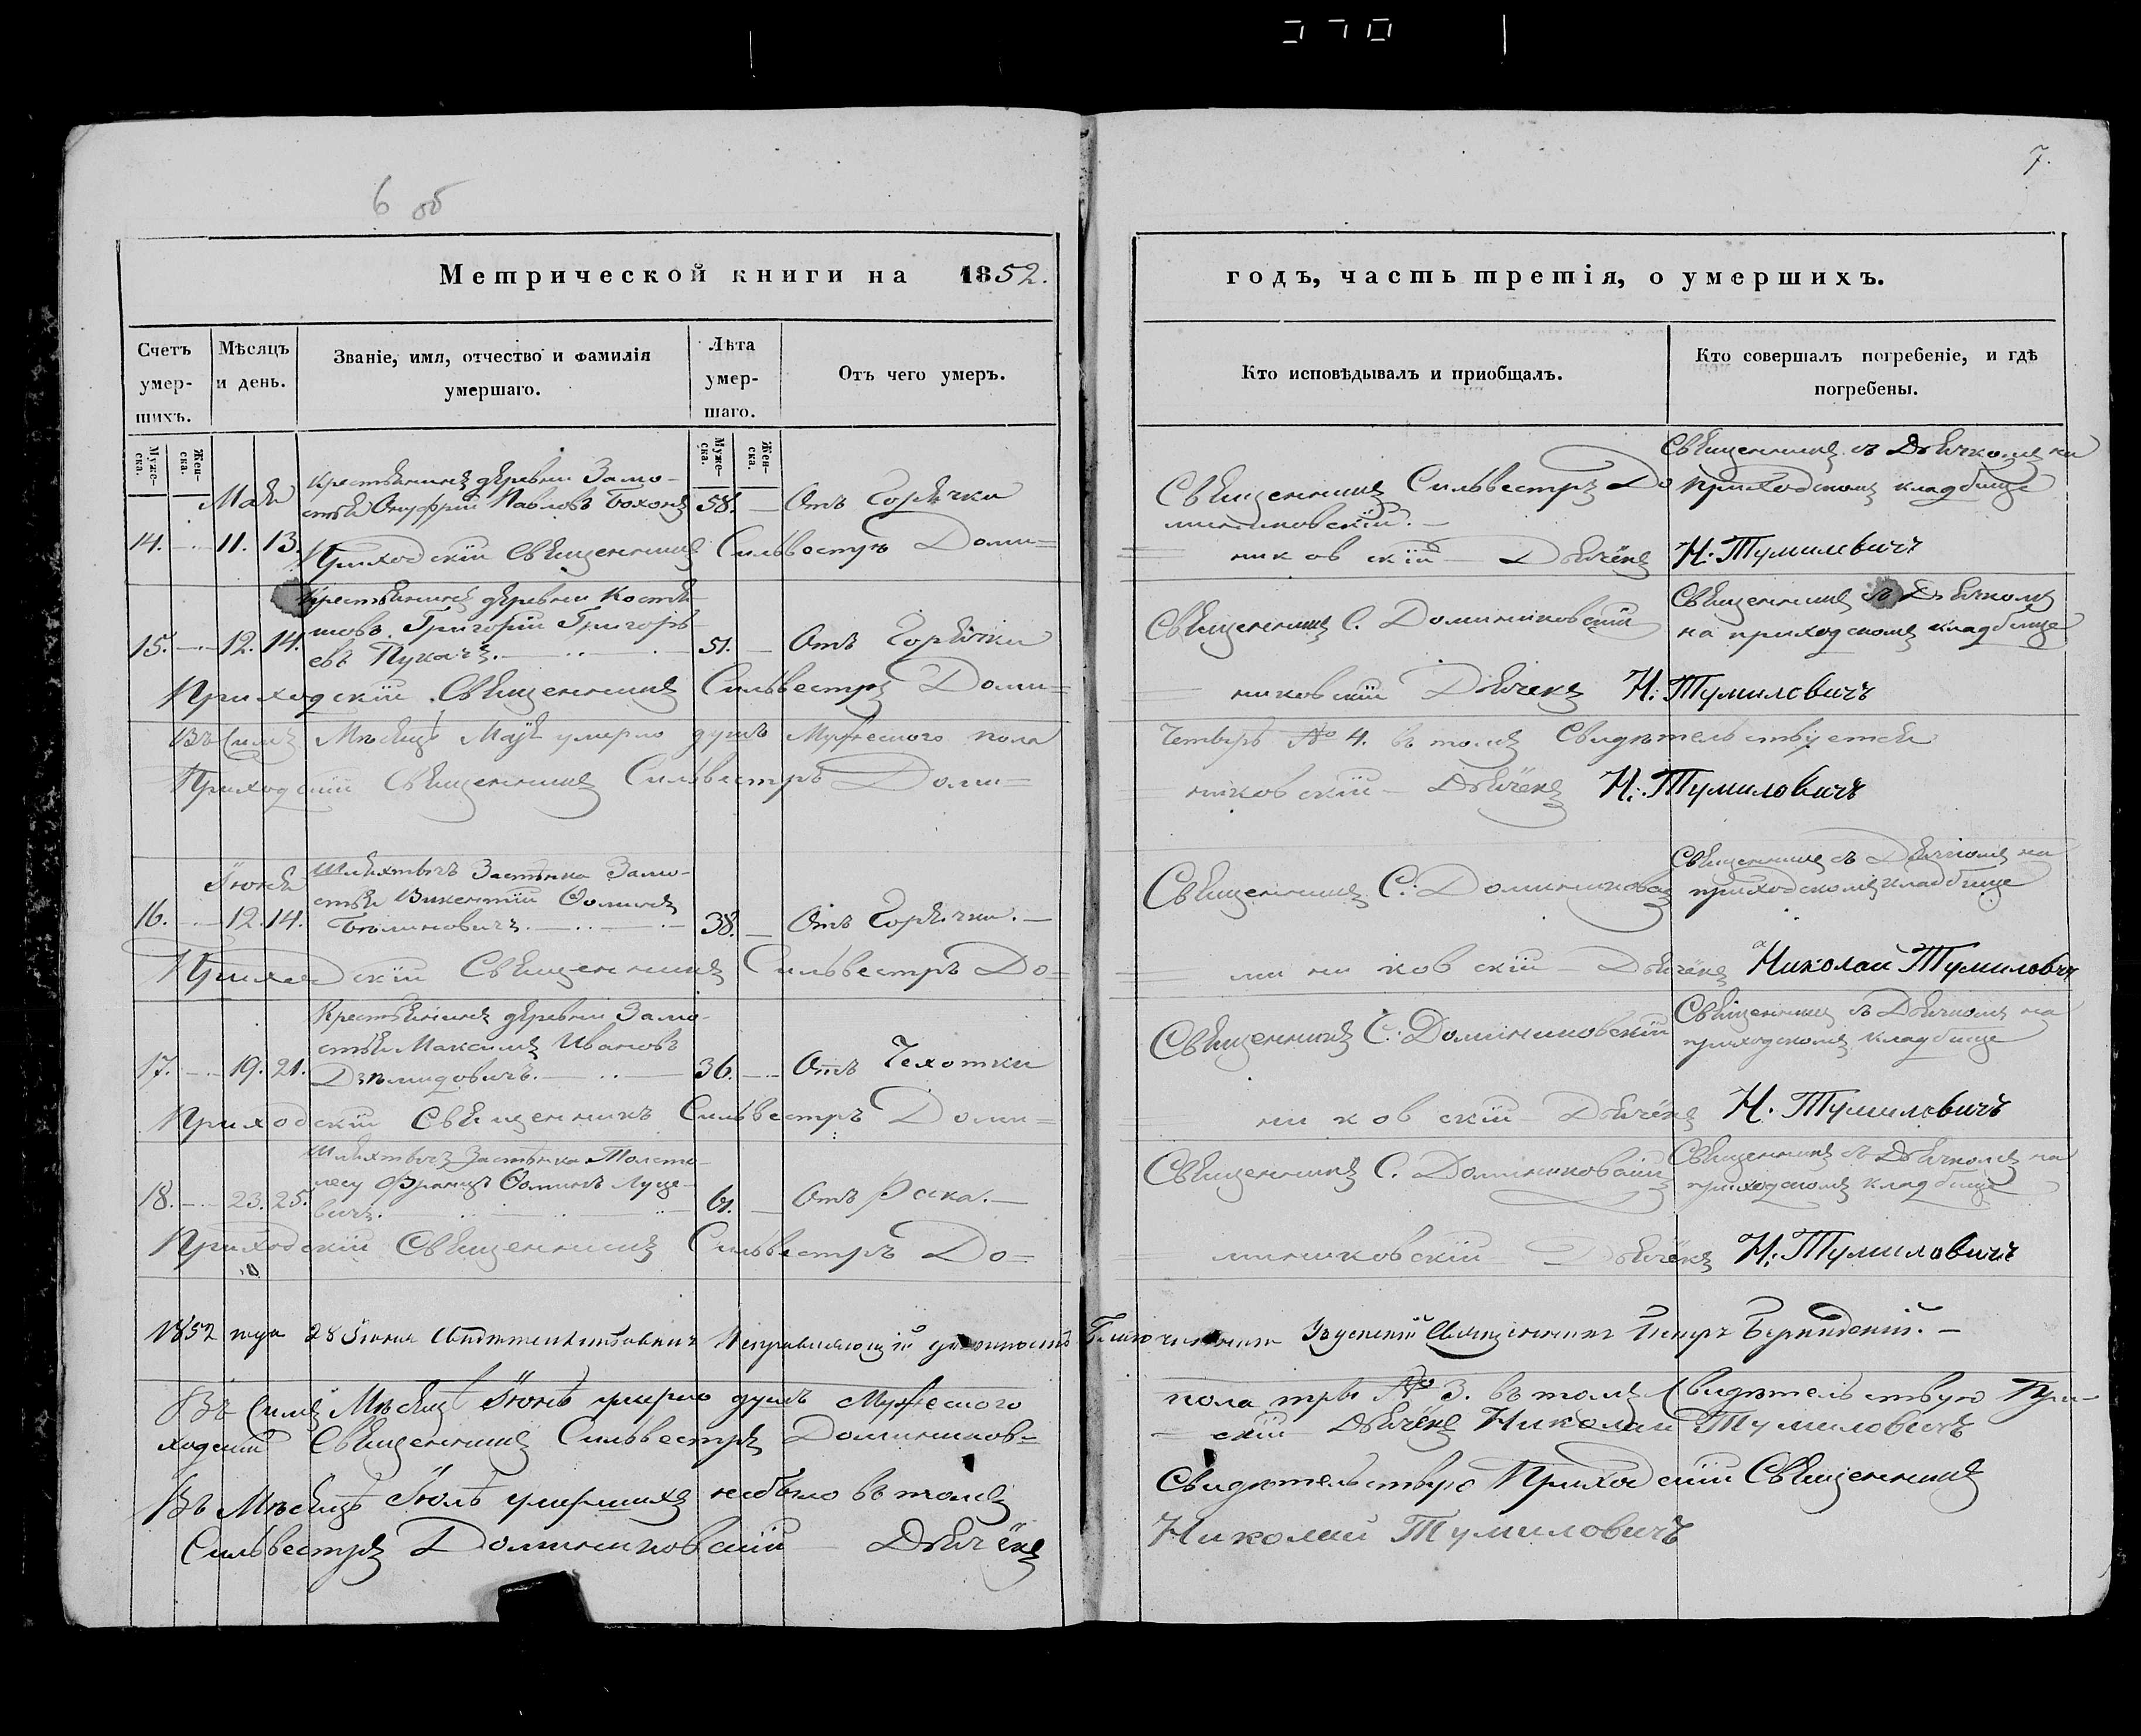 6 об
7.
Метрической книги на 1852.
годъ, часть третія, о умершихъ.
Счетъ умер-шихъ.
Мѣсяцъ и день.
Званіе, имя, отчество и фамилія умершаго.
Лѣта умер-шаго.
Отъ чего умеръ.
Кто исповѣдывалъ и приобщалъ.
Кто совершалъ погребеніе, и гдѣ погребены.
Муже-ска.
Жен-ска.
Муже-ска.
Жен-ска.
Мая
14. 11. 13.
Крестьянинъ деревни Замо-
стья Онуфрій Павловъ Бохонъ
58. Отъ Горячки
Священникъ Сильвестръ До
миниковскій.
Священникъ съ Дьячкомъ на
приходскомъ кладбище
Приходскій Священникъ Сильвестръ Доми=
никовскій Дьячёкъ Н. Тумиловичъ
15. 12. 14.
Крестьянинъ деревни Костя-
товъ Григорій Григорь-
евъ Пукачъ.
51. Отъ Горячки
Священникъ С. Доминиковскій
Священникъ съ Дьячкомъ
на приходскомъ кладбище
Приходскій Священникъ Сильвестръ Доми=
никовскій Дьячекъ Н. Тумиловичъ
Въ Симъ Мѣсяцѣ Маѣ умерло душъ Мужеского пола
Четыръ № 4. въ томъ Свидѣтельствуется
Приходскій Священникъ Сильвестръ Доми=
никовскій Дьячёкъ Н. Тумиловичъ
Іюня
16. 12. 14.
Шляхтичъ Застѣнка Замо-
стья Викентій Ѳоминъ
38. Отъ Горячки.
Священникъ С. Доминиковск
Священникъ съ Дьячкомъ на
приходскомъ кладбище
Приходскій Священникъ Сильвестръ До=
миниковскій Дьячёкъ Николай Тумиловичъ
17. 19. 21.
Крестьянинъ деревни Замо-
стья Максимъ Ивановъ
36. Отъ Чехотки
Священникъ С. Доминиковскій
Священникъ съ Дьячкомъ на
приходскомъ кладбище
Приходскій Священникъ Сильвестръ Доми=
никовскій Дьячёкъ Н. Тумиловичъ
18. 23. 25.
Шляхтичъ Застѣнка Толсто-
лесу Францъ Ѳоминъ Луце-
вичъ.
61. Отъ Рака.
Священникъ С. Доминиковскій
Священникъ съ Дьячкомъ на
приходскомъ кладбище
Приходскій Священникъ Сильвестръ До=
миниковскій Дьячёкъ Н. Тумиловичъ
1852 года 28 Іюня Исправляющій должность Благочиннаго Священникъ Петръ
Въ Симъ Мѣсяцѣ Іюнѣ умерло душъ Мужеского
пола три № 3. въ томъ Свидѣтельствую При-
ходскій Священникъ Сильвестръ Домиников=
скій Дьячёкъ Николай Тумиловичъ
Въ Мѣсяцѣ Іюлѣ умершихъ небыло въ томъ
Свидѣтельствую Приходскій Священникъ
Сильвестръ Доминиковскій Дьячёкъ
Николай Тумиловичъ